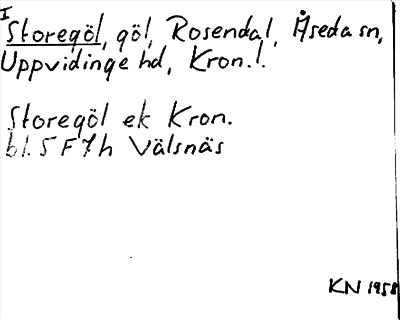 I
Storegöl, göl, Rosendal, Åseda sn,
Uppvidinge hd, Kron.l.
Storegöl ek Kron.
bl. 5 F 7 h Välsnäs
KN 1958